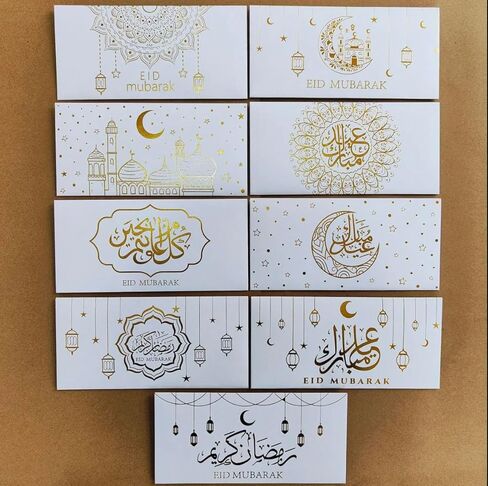 EID
mubarak
EID MUBARAK
عيد مبارك
كل عام وانتم بخير
EID MUBARAK
عيد مبارك
رمضان كريم
EID MUBARAK
عيد مبارك
EID MUBARAK
رمضان كريم
EID MUBARAK